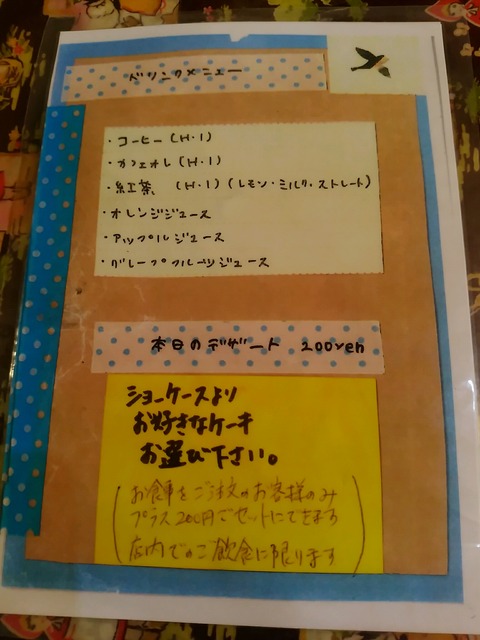 ドリンクメニュー
・コーヒー(H・I)
・カフェオレ(H・I)
・紅茶 (H・I)(レモン・ミルク・ストレート)
・オレンジジュース
・アップルジュース
・グレープフルーツジュース
本日のデザート 200yen
ショーケースより
お好きなケーキ
お選び下さい。
(お食事をご注文のお客様のみ
プラス200円でセットにできます
店内でのご飲食に限ります)